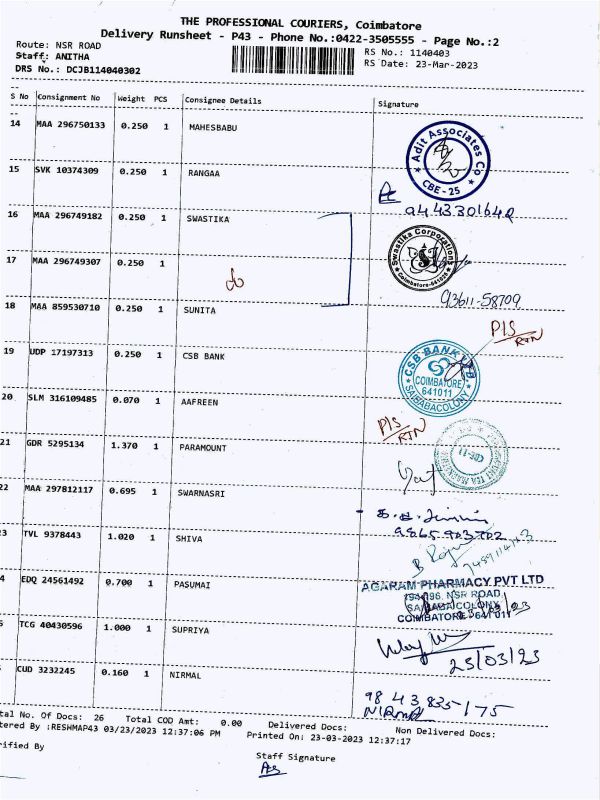 THE PROFESSIONAL COURIERS, Coimbatore
Delivery Runsheet - P43 - Phone No.:0422-3505555 - Page No.:2
Route: NSR ROAD
RS No.: 1140403
Staff: ANITHA
RS Date: 23-Mar-2023
DRS No.: DCJB114040302
S No Consignment No Weight PCS Consignee Details Signature
14 MAA 296750133 0.250 1 MAHESBABU
Adit Associates Co
CBE - 25
15 SVK 10374309 0.250 1 RANGAA
9443301642
16 MAA 296749182 0.250 1 SWASTIKA
Swastika Corporations
Coimbatore-641025
17 MAA 296749307 0.250 1
93611-58709
18 MAA 859530710 0.250 1 SUNITA
PIS/RTN
19 UDP 17197313 0.250 1 CSB BANK
CSB BANK LTD
COIMBATORE
641011
SAIBABACOLONY
20 SLM 316109485 0.070 1 AAFREEN
PIS/RTN
21 GDR 5295134 1.370 1 PARAMOUNT
22 MAA 297812117 0.695 1 SWARNASRI
9865903702
3 TVL 9378443 1.020 1 SHIVA
4 EDQ 24561492 0.700 1 PASUMAI
AGARAM PHARMACY PVT LTD
NSR ROAD
SAIBABA COLONY
COIMBATORE - 641 011
TCG 40430596 1.000 1 SUPRIYA
23/03/23
CUD 3232245 0.160 1 NIRMAL
98 43 835175
Nirmal
tal No. Of Docs: 26 Total COD Amt: 0.00 Delivered Docs: Non Delivered Docs:
tered By :RESHMAP43 03/23/2023 12:37:06 PM Printed On: 23-03-2023 12:37:17
rified By
Staff Signature